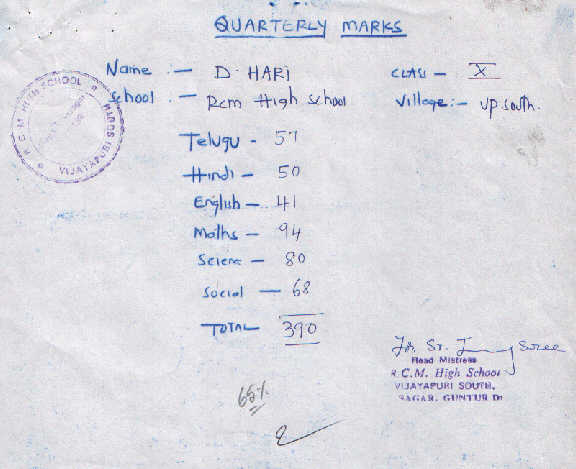 QUARTERLY MARKS
Name :- D. HARI
CLASS - X
School :- Rcm High School
Village :- VP South.
R.C.M. HIGH SCHOOL
VIJAYAPURI SOUTH
Telugu - 57
Hindi - 50
English - 41
Maths - 94
Science - 80
Social - 68
TOTAL 390
65%
Head Mistress
R.C.M. High School
VIJAYAPURI SOUTH,
SAGAR, GUNTUR Dt